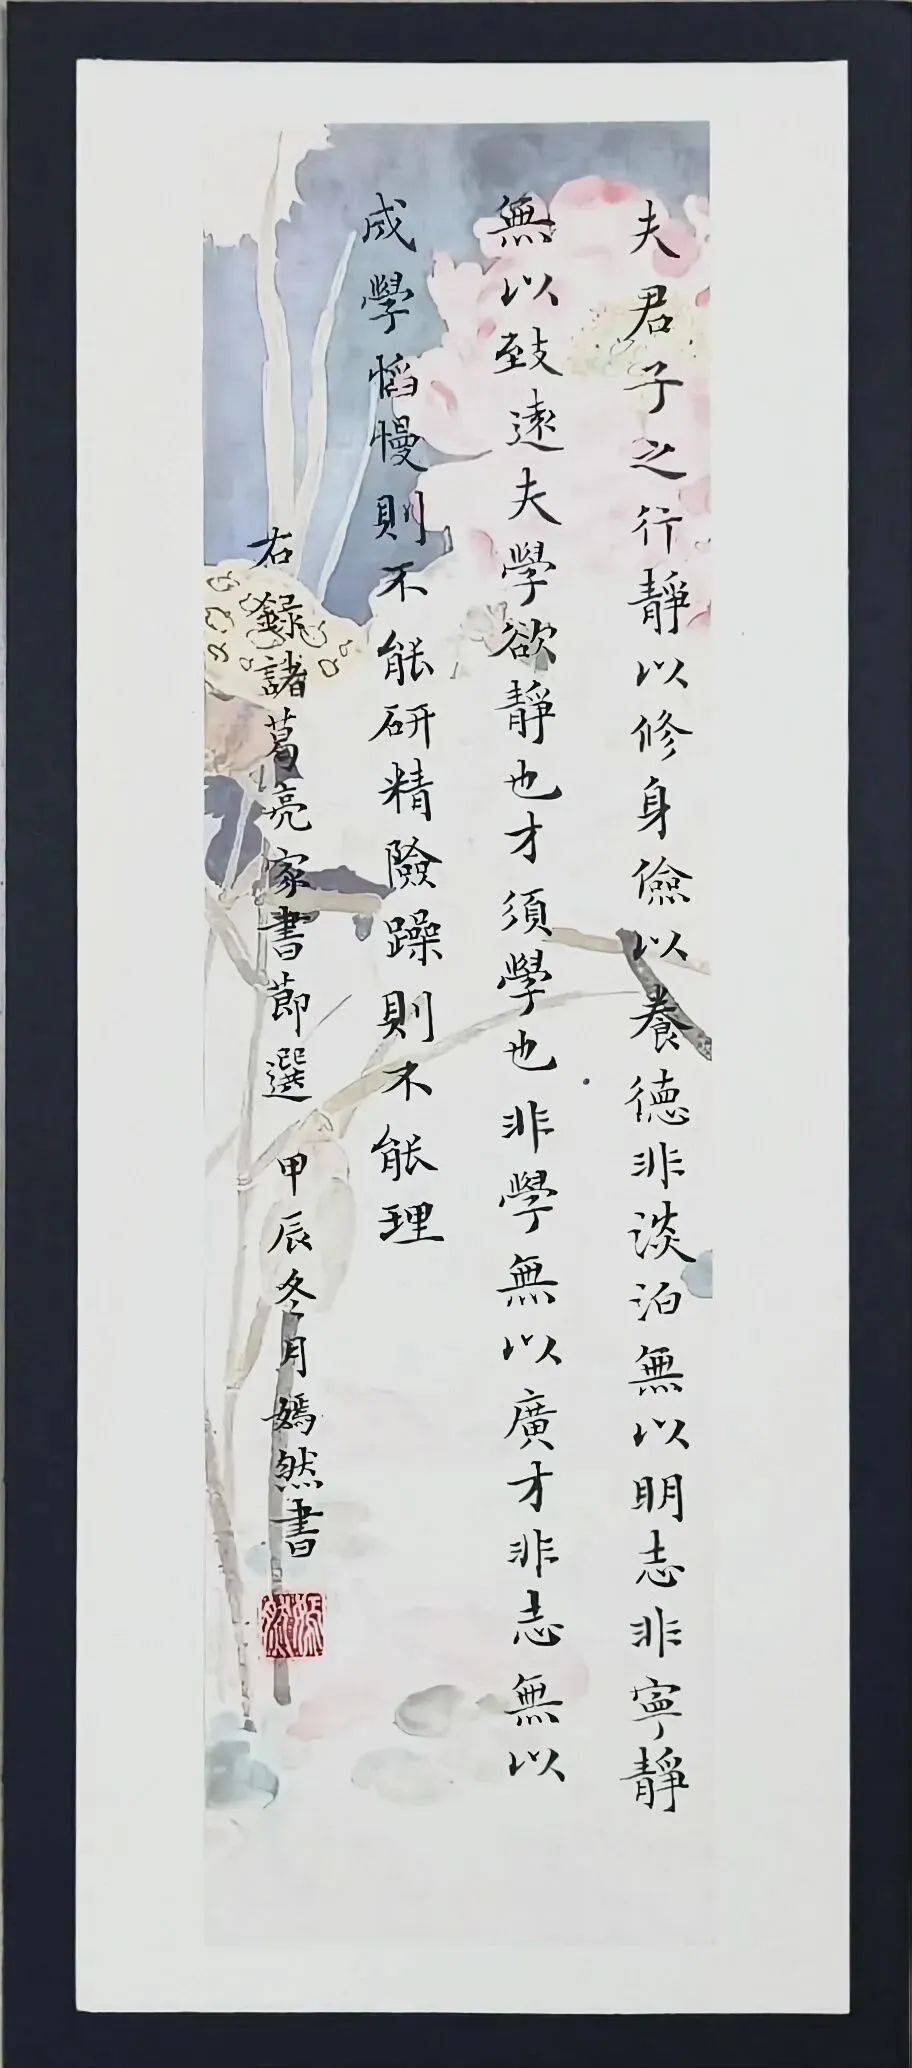 夫君子之行靜以修身儉以養德非淡泊無以明志非寧靜
無以致遠夫學欲靜也才須學也非學無以廣才非志無以
成學慆慢則不能研精險躁則不能理
右録諸葛亮家書節選 甲辰冬月嫣然書
嫣然